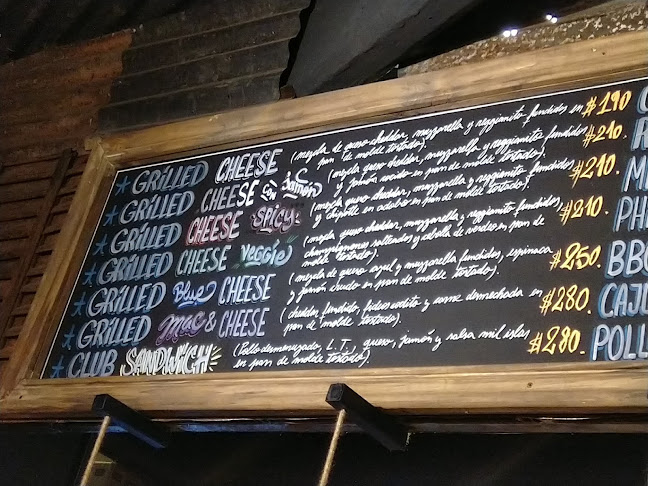 GRILLED CHEESE (mezcla de queso cheddar, mozzarella y reggianito fundidos en $190
pan de molde tostado).
GRILLED CHEESE con Jamón (mezcla queso cheddar, mozzarella y reggianito fundidos $210.
y jamón cocido en pan de molde tostado).
GRILLED CHEESE SPICY (mezcla queso cheddar, mozzarella y reggianito fundidos $210.
y chipotle en adobo en pan de molde tostado).
GRILLED CHEESE Veggie (mezcla queso cheddar, mozzarella y reggianito fundidos, $210.
champignones salteados y cebolla de verdeo en pan de
molde tostado).
GRILLED Blue CHEESE (mezcla de queso azul y mozzarella fundidos, espinaca $250.
y jamón crudo en pan de molde tostado).
GRILLED Mac & CHEESE (cheddar fundido, fideos codito y carne desmechada en $280.
pan de molde tostado).
CLUB SANDWICH (Pollo desmenuzado, L.T., queso, jamón y salsa mil islas $280.
en pan de molde tostado).
PH
BBQ
CAJU
POLL